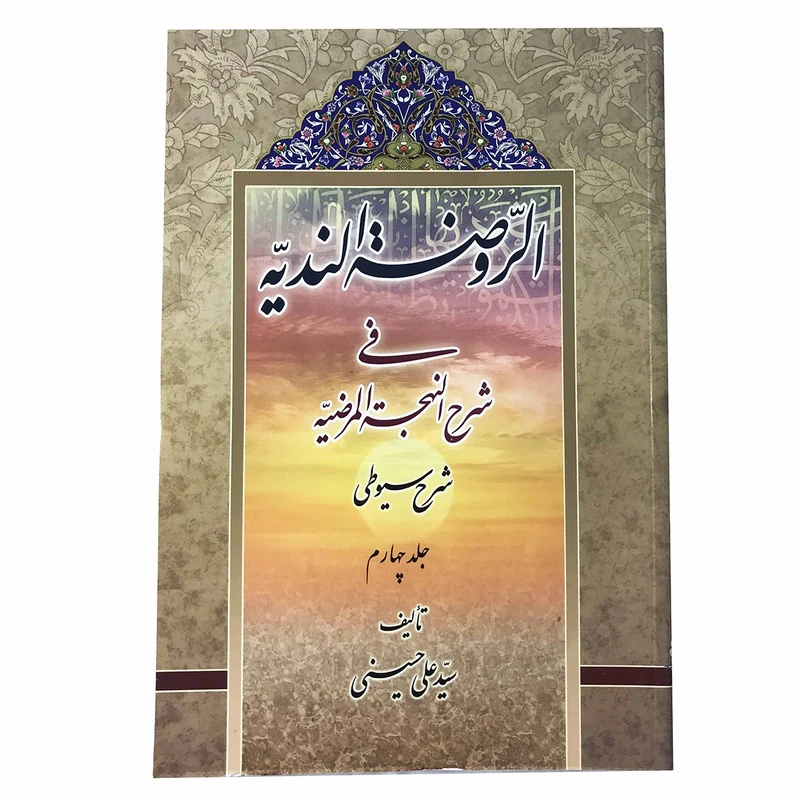 الرّوضة النديّه
فی
شرح البهجة المرضیّه
شرح سیوطی
جلد چهارم
تألیف
سیّد علی حسینی